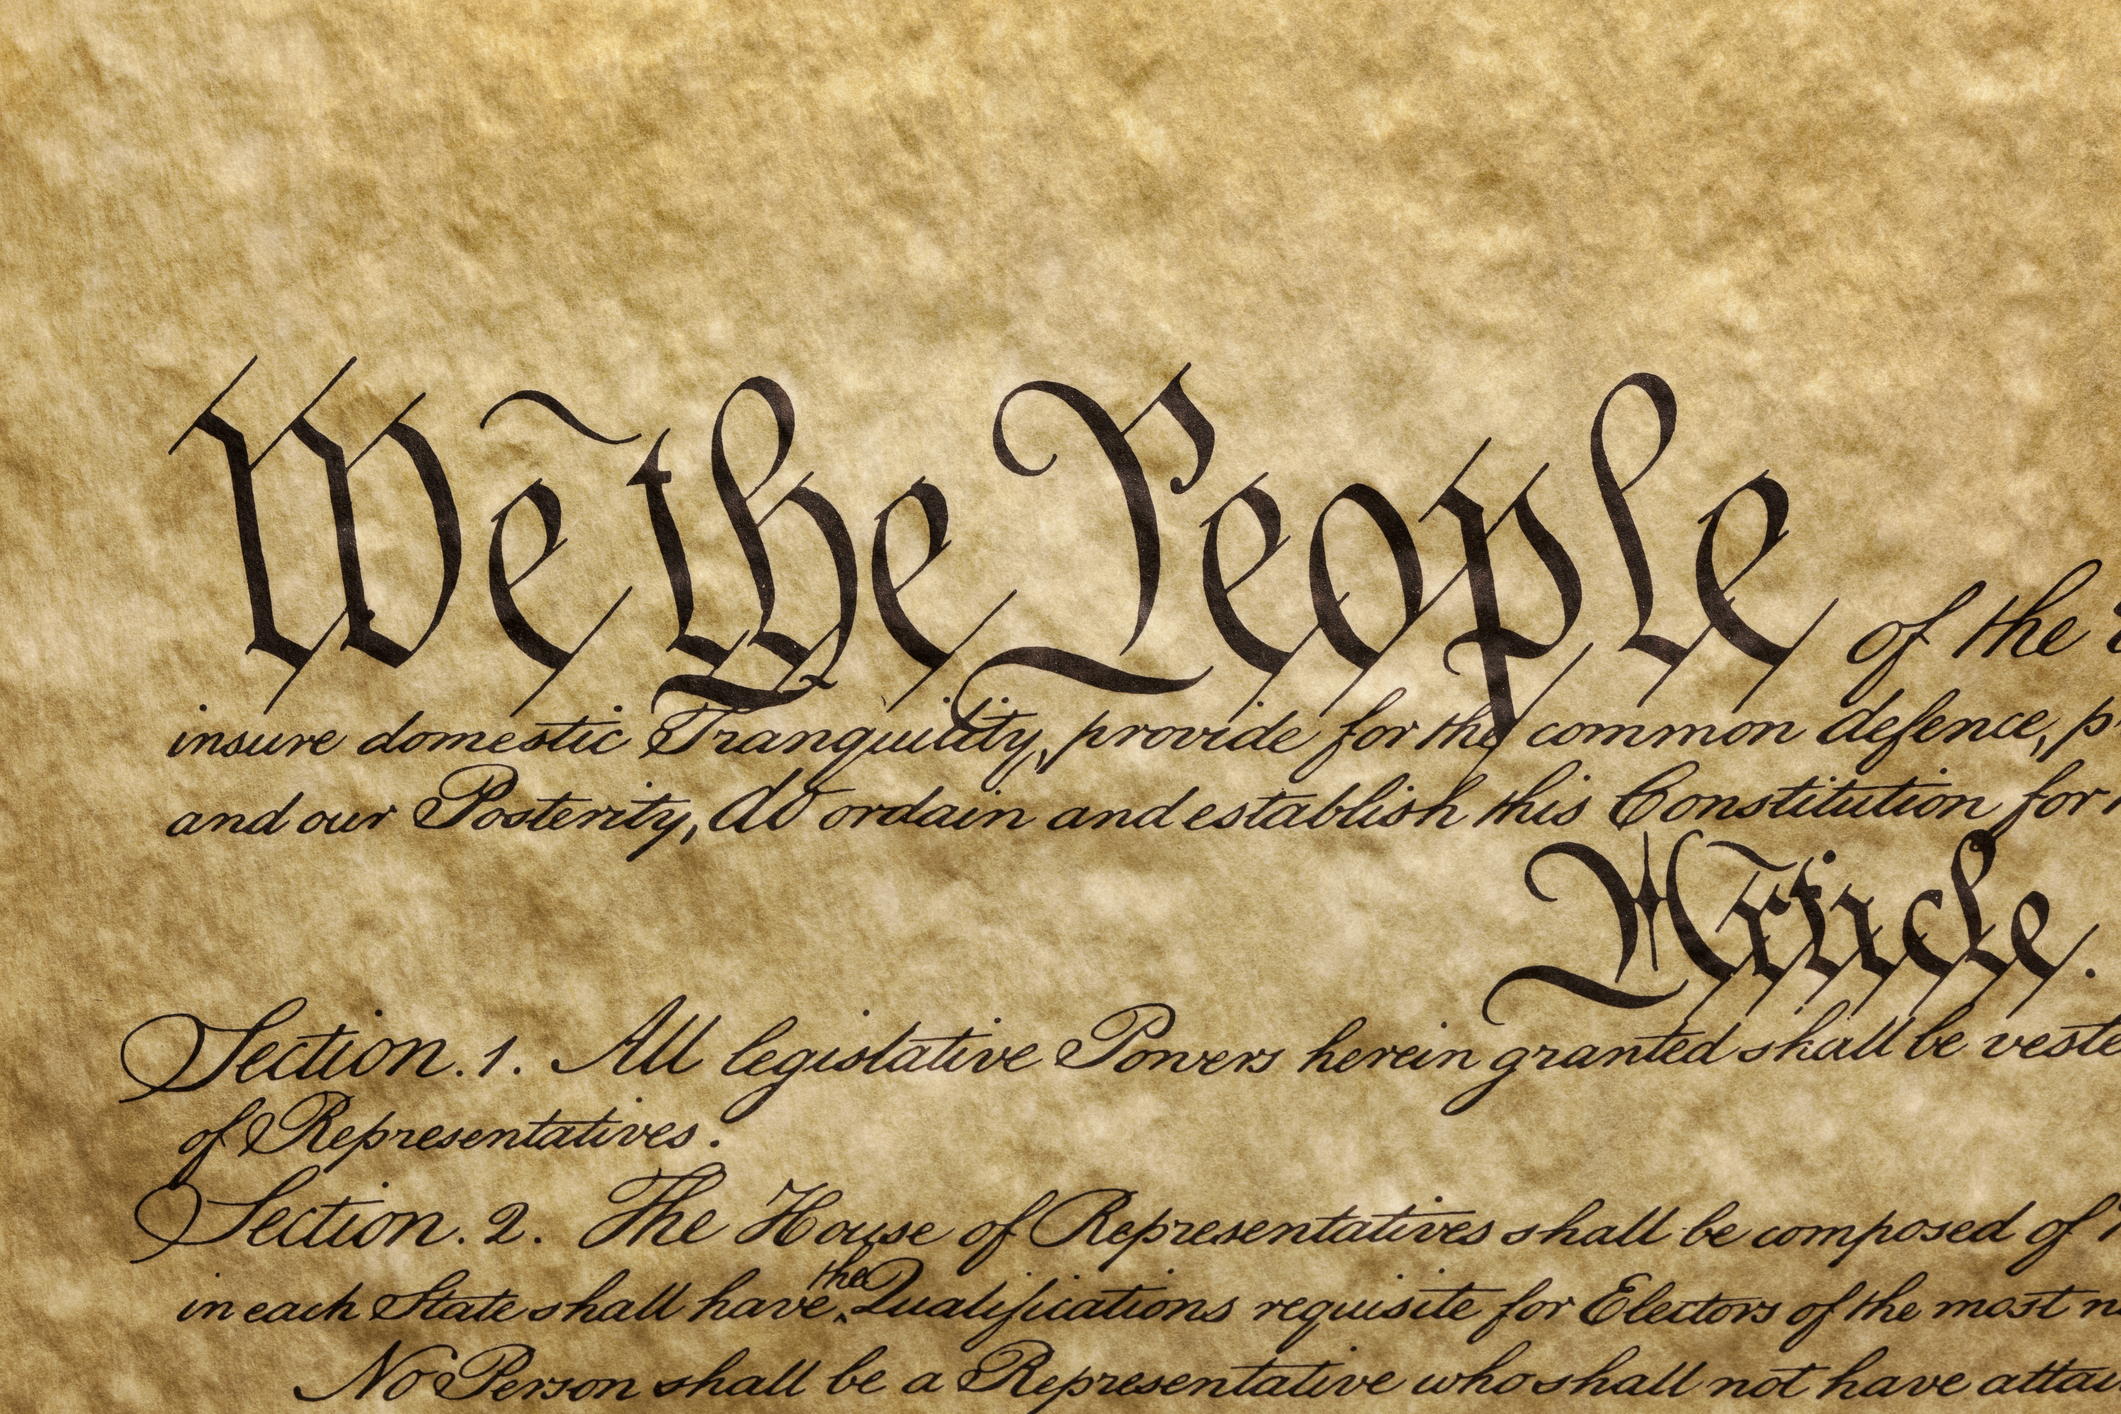 We the People of the
insure domestic Tranquility, provide for the common defence, p
and our Posterity, do ordain and establish this Constitution for
Article.
Section. 1. All legislative Powers herein granted shall be veste
of Representatives.
Section. 2. The House of Representatives shall be composed of
the
in each State shall have Qualifications requisite for Electors of the most n
No Person shall be a Representative who shall not have attai